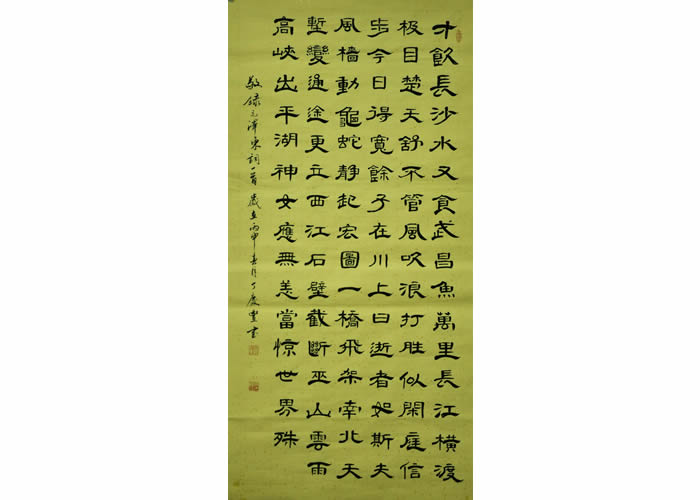 才飲長沙水又食武昌魚萬里長江橫渡
极目楚天舒不管風吹浪打胜似閑庭信
步今日得寬餘子在川上曰逝者如斯夫
風檣動龜蛇靜起宏圖一橋飛架南北天
塹變通途更立西江石壁截斷巫山雲雨
高峽出平湖神女應無恙當惊世界殊
敬録毛澤東詞一首歲在丙申春月丁慶豊書